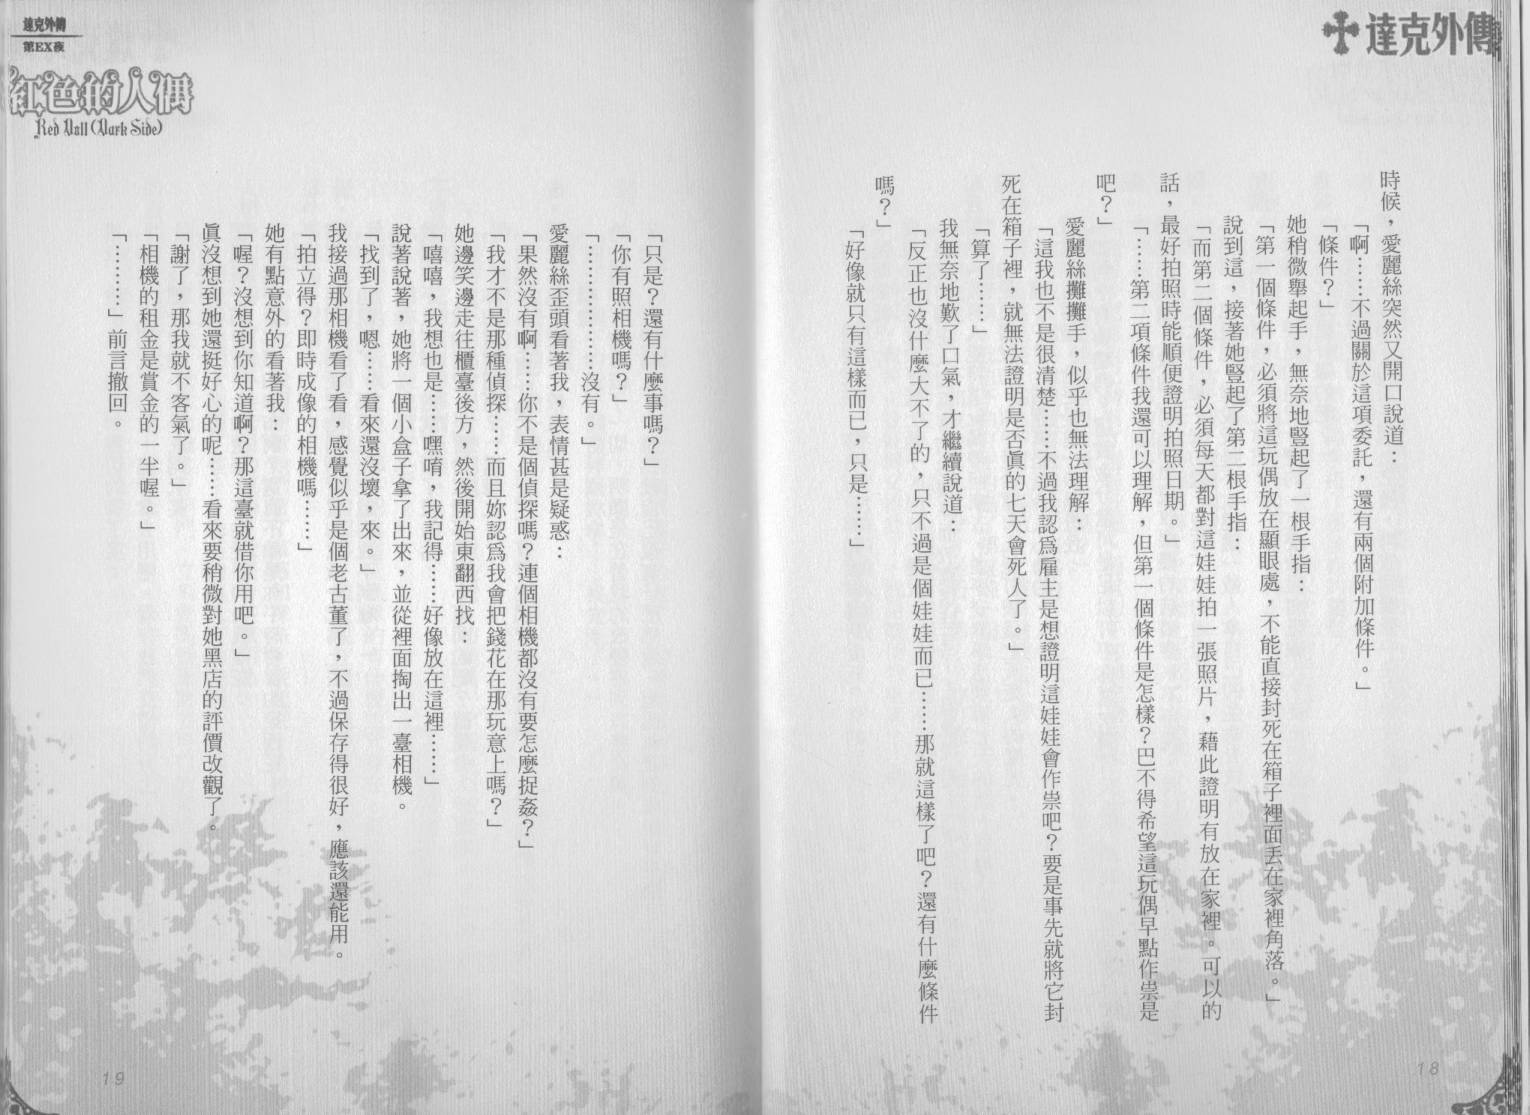 達克外傳
時候，愛麗絲突然又開口說道：
「啊……不過關於這項委託，還有兩個附加條件。」
「條件？」
她稍微舉起手，無奈地豎起了一根手指：
「第一個條件，必須將這玩偶放在顯眼處，不能直接封死在箱子裡面丟在家裡角落。」
說到這，接著她豎起了第二根手指：
「而第二個條件，必須每天都對這娃娃拍一張照片，藉此證明有放在家裡。可以的
話，最好拍照時能順便證明拍照日期。」
「……第二項條件我還可以理解，但第一個條件是怎樣？巴不得希望這玩偶早點作祟是
吧？」
愛麗絲攤攤手，似乎也無法理解：
「這我也不是很清楚……不過我認為雇主是想證明這娃娃會作祟吧？要是事先就將它封
死在箱子裡，就無法證明是否眞的七天會死人了。」
「算了……」
我無奈地歎了口氣，才繼續說道：
「反正也沒什麼大不了的，只不過是個娃娃而已……那就這樣了吧？還有什麼條件
嗎？」
「好像就只有這樣而已，只是……」
18
達克外傳
第EX夜
紅色的人偶
Red Doll (Dark Side)
「只是？還有什麼事嗎？」
「你有照相機嗎？」
「………………沒有。」
愛麗絲歪頭看著我，表情甚是疑惑：
「果然沒有啊……你不是個偵探嗎？連個相機都沒有要怎麼捉姦？」
「我才不是那種偵探……而且妳認爲我會把錢花在那玩意上嗎？」
她邊笑邊走往櫃臺後方，然後開始東翻西找：
「嘻嘻，我想也是……嘿唷，我記得……好像放在這裡……」
說著說著，她將一個小盒子拿了出來，並從裡面掏出一臺相機。
「找到了，嗯……看來還沒壞，來。」
我接過那相機看了看，感覺似乎是個老古董了，不過保存得很好，應該還能用。
「拍立得？即時成像的相機嗎……」
她有點意外的看著我：
「喔？沒想到你知道啊？那這臺就借你用吧。」
眞沒想到她還挺好心的呢……看來要稍微對她黑店的評價改觀了。
「謝了，那我就不客氣了。」
「相機的租金是賞金的一半喔。」
「………」前言撤回。
19